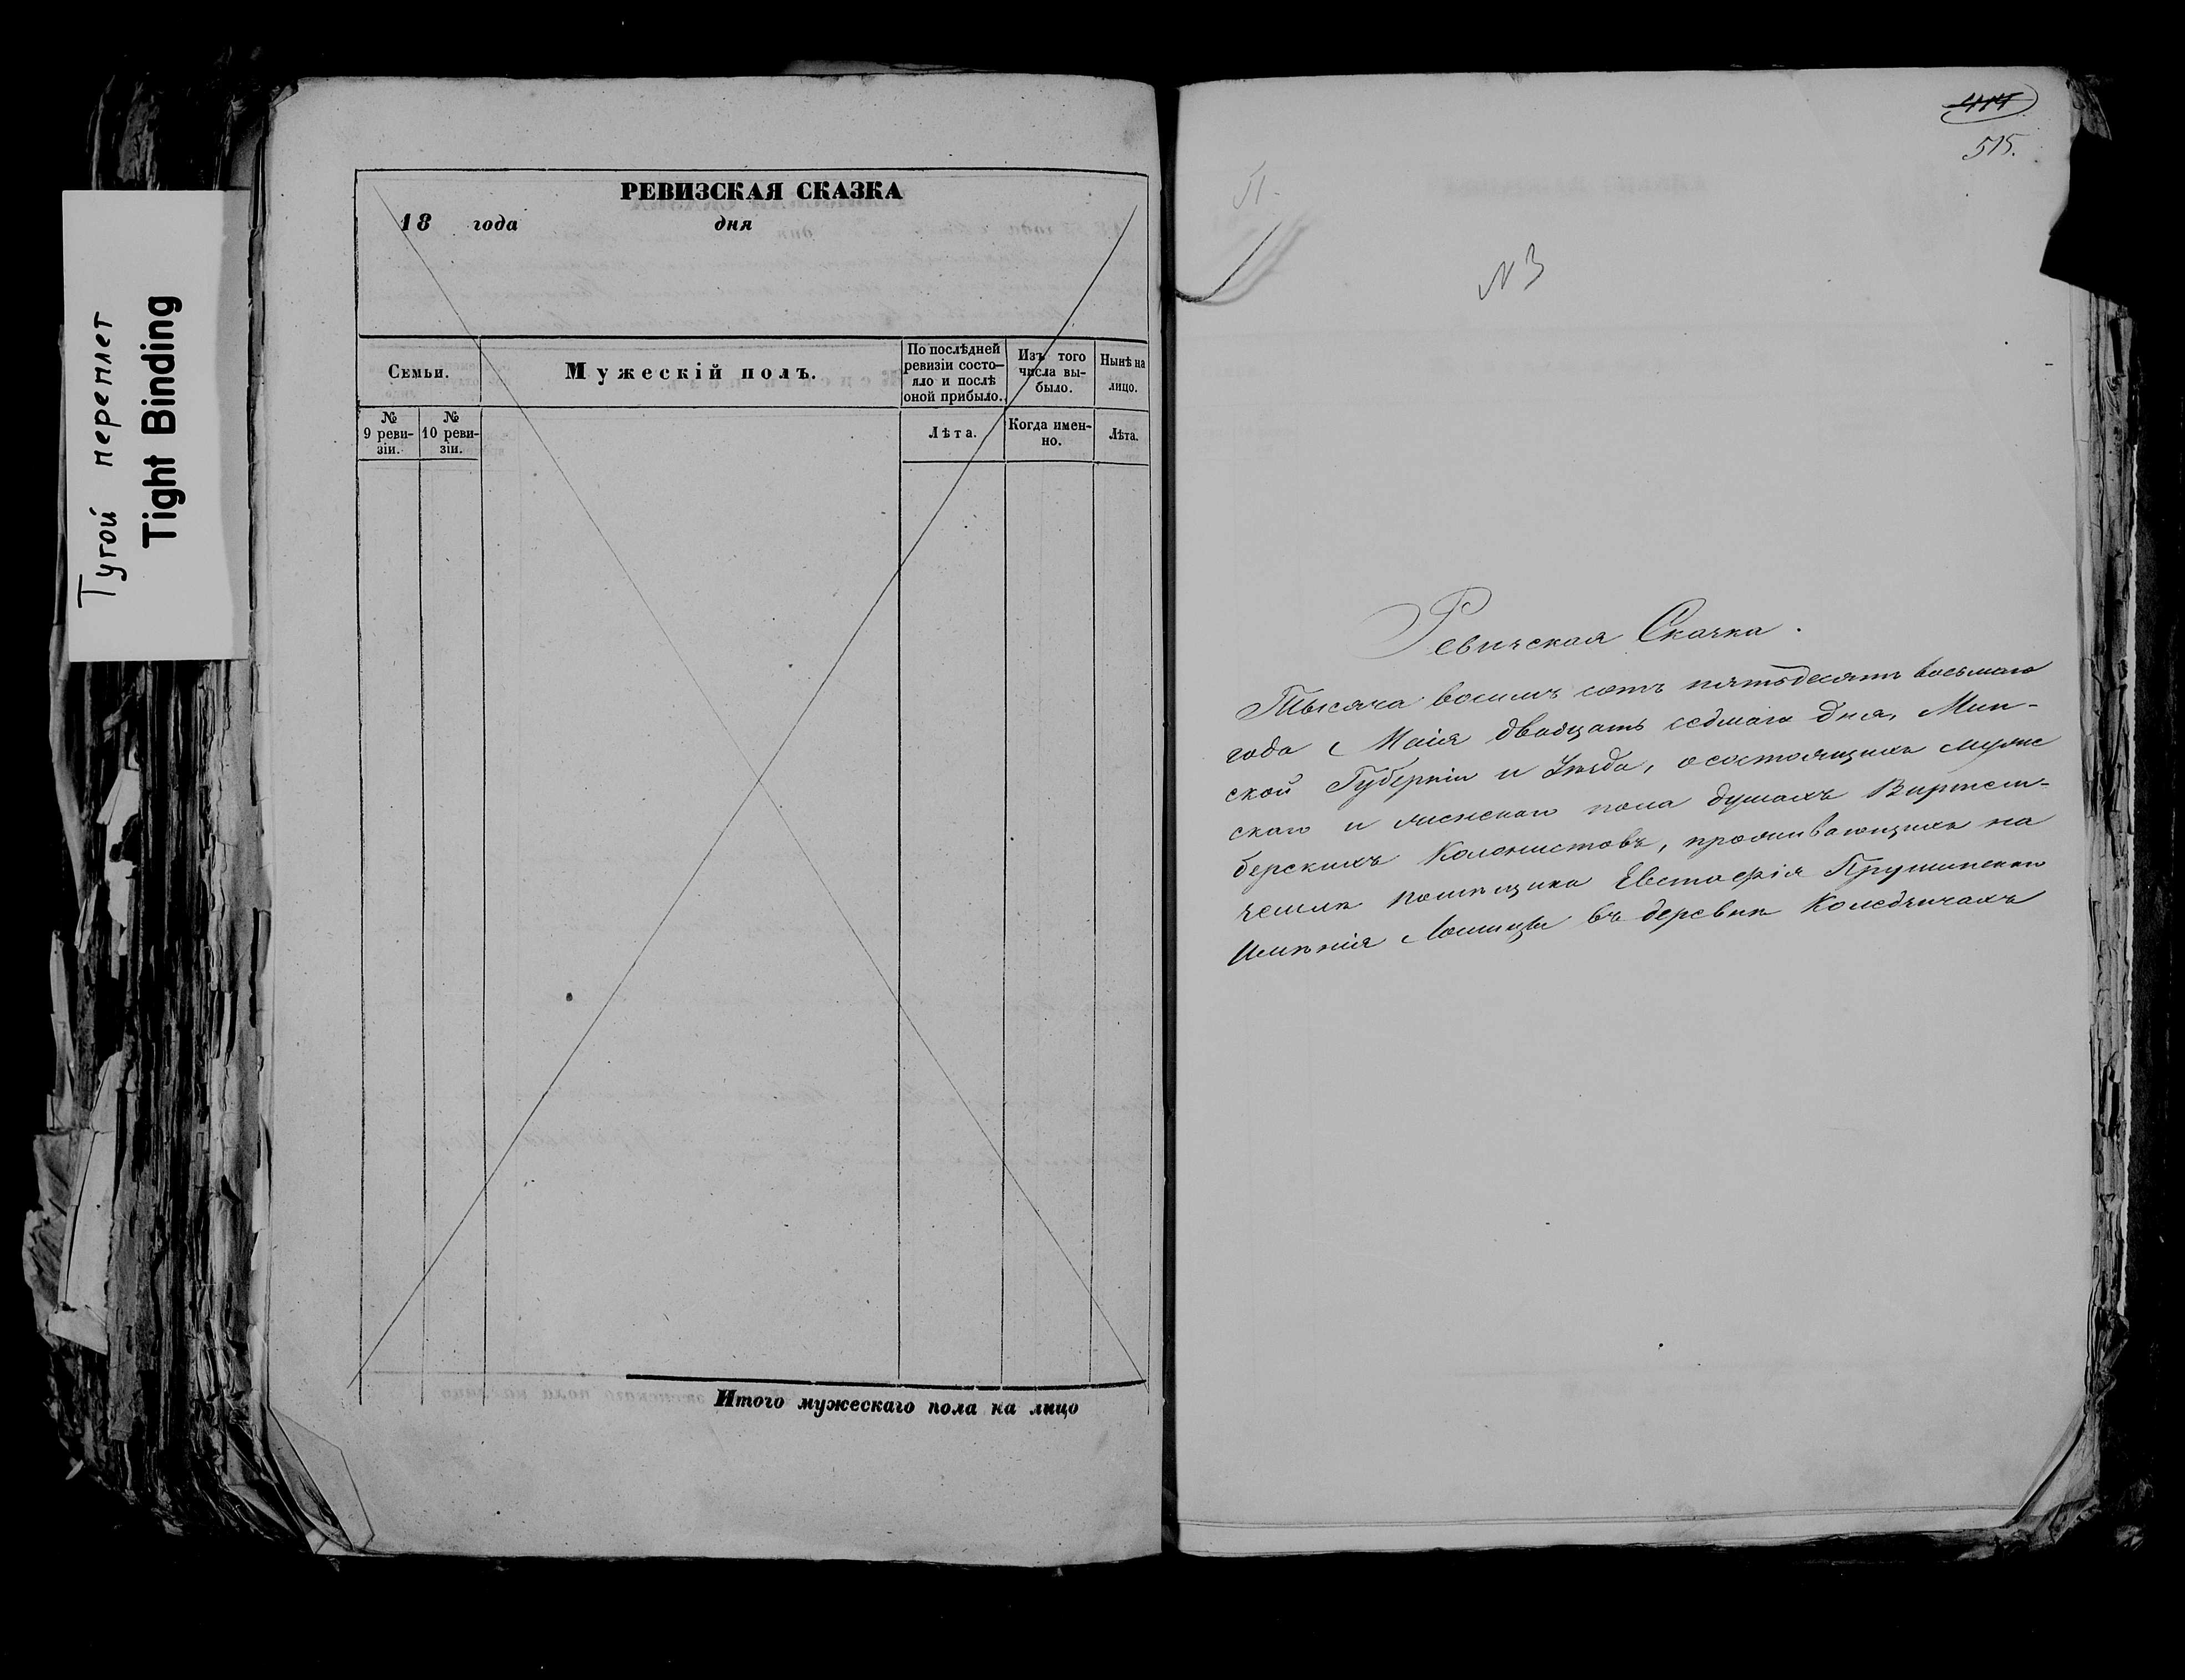 Тугой переплет
Tight Binding
РЕВИЗСКАЯ СКАЗКА
18 года дня
Семьи.
Мужескій полъ.
По послѣдней ревизіи состо-яло и послѣ оной прибыло.
Изъ того числа вы-было.
Нынѣ на лицо.
№ 9 реви-зіи.
№ 10 реви-зіи.
Лѣта.
Когда имен-но.
Лѣта.
Итого мужескаго пола на лицо
515.
N 3
Ревизская Сказка.
Тысяча восемь сотъ пятьдесятъ восьмаго
года Маія двадцать седмаго дня, Мин-
ской Губерніи и Уѣзда, о состоящихъ мужс
скаго и женскаго пола душахъ Виртем-
берскихъ Колонистовъ, проживающихъ на
землѣ помѣщика Евстафія Прушинскаго
Имѣнія Лошицы въ деревнѣ Колядичахъ